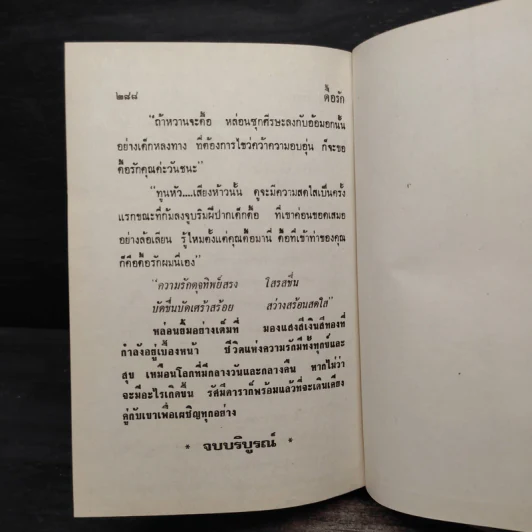 ๒๘๘ ดื้อรัก
"ถ้าหวานจะดื้อ หล่อนซุกศีรษะลงกับอ้อมอกนั้น
อย่างเด็กหลงทาง ที่ต้องการไขว่คว้าความอบอุ่น ก็จะขอ
ดื้อรักคุณค่ะวันชนะ"
"ทูนหัว....เสียงห้าวนั้น ดูจะมีความสดใสเป็นครั้ง
แรกขณะที่ก้มลงจูบริมฝีปากเด็กดื้อ ที่เขาค่อนขอดเสมอ
อย่างล้อเลียน รู้ไหมตั้งแต่คุณดื้อมานี่ ดื้อที่เข้าท่าของคุณ
ก็คือดื้อรักผมนี่เอง"
"ความรักดุจทิพย์สรง โสรสชื่น
บัดชื่นบัดเศร้าสร้อย สว่างสร้อนสดใส"
หล่อนยิ้มอย่างเต็มที่ มองแสงสีเงินสีทองที่
กำลังอยู่เบื้องหน้า ชีวิตแห่งความรักมีทั้งทุกข์และ
สุข เหมือนโลกที่มีกลางวันและกลางคืน หากไม่ว่า
จะมีอะไรเกิดขึ้น รัศมีดาราก็พร้อมแล้วที่จะเดินเคียง
คู่กับเขาเพื่อเผชิญทุกอย่าง
* จบบริบูรณ์ *